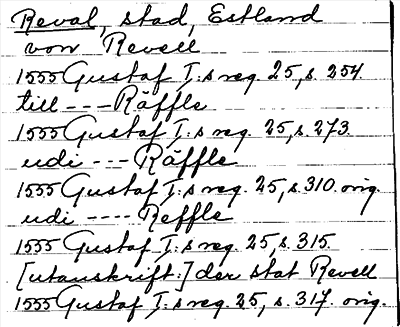 Reval, stad, Estland
von Revell
1555 Gustaf I:s reg. 25, s. 254
till --- Räffle
1555 Gustaf I:s reg. 25, s. 273
udi --- Räffle
1555 Gustaf I:s reg. 25, s. 310. orig.
udi ---- Reffle
1555 Gustaf I:s reg. 25, s. 315.
[utanskrift:] der stat Revell
1555 Gustaf I:s reg. 25, s. 317. orig.